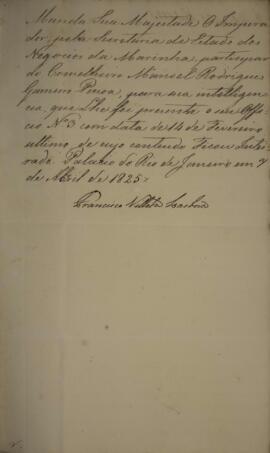 Manda Sua Magestade O Impera
dor, pela Secretaria de Estado dos
Negocios da Marinha, participar
ao Conselheiro Manoel Rodrigues
Gameiro Pessoa, para sua intelligen
cia, que Lhe foi presente o seu Offi
cio Nº 3 com data de 14 de Fevereiro
ultimo, de cujo contendo Ficou Intei
rado. Palacio do Rio de Janeiro em 7
de Abril de 1825.
Francisco Villela Barboza